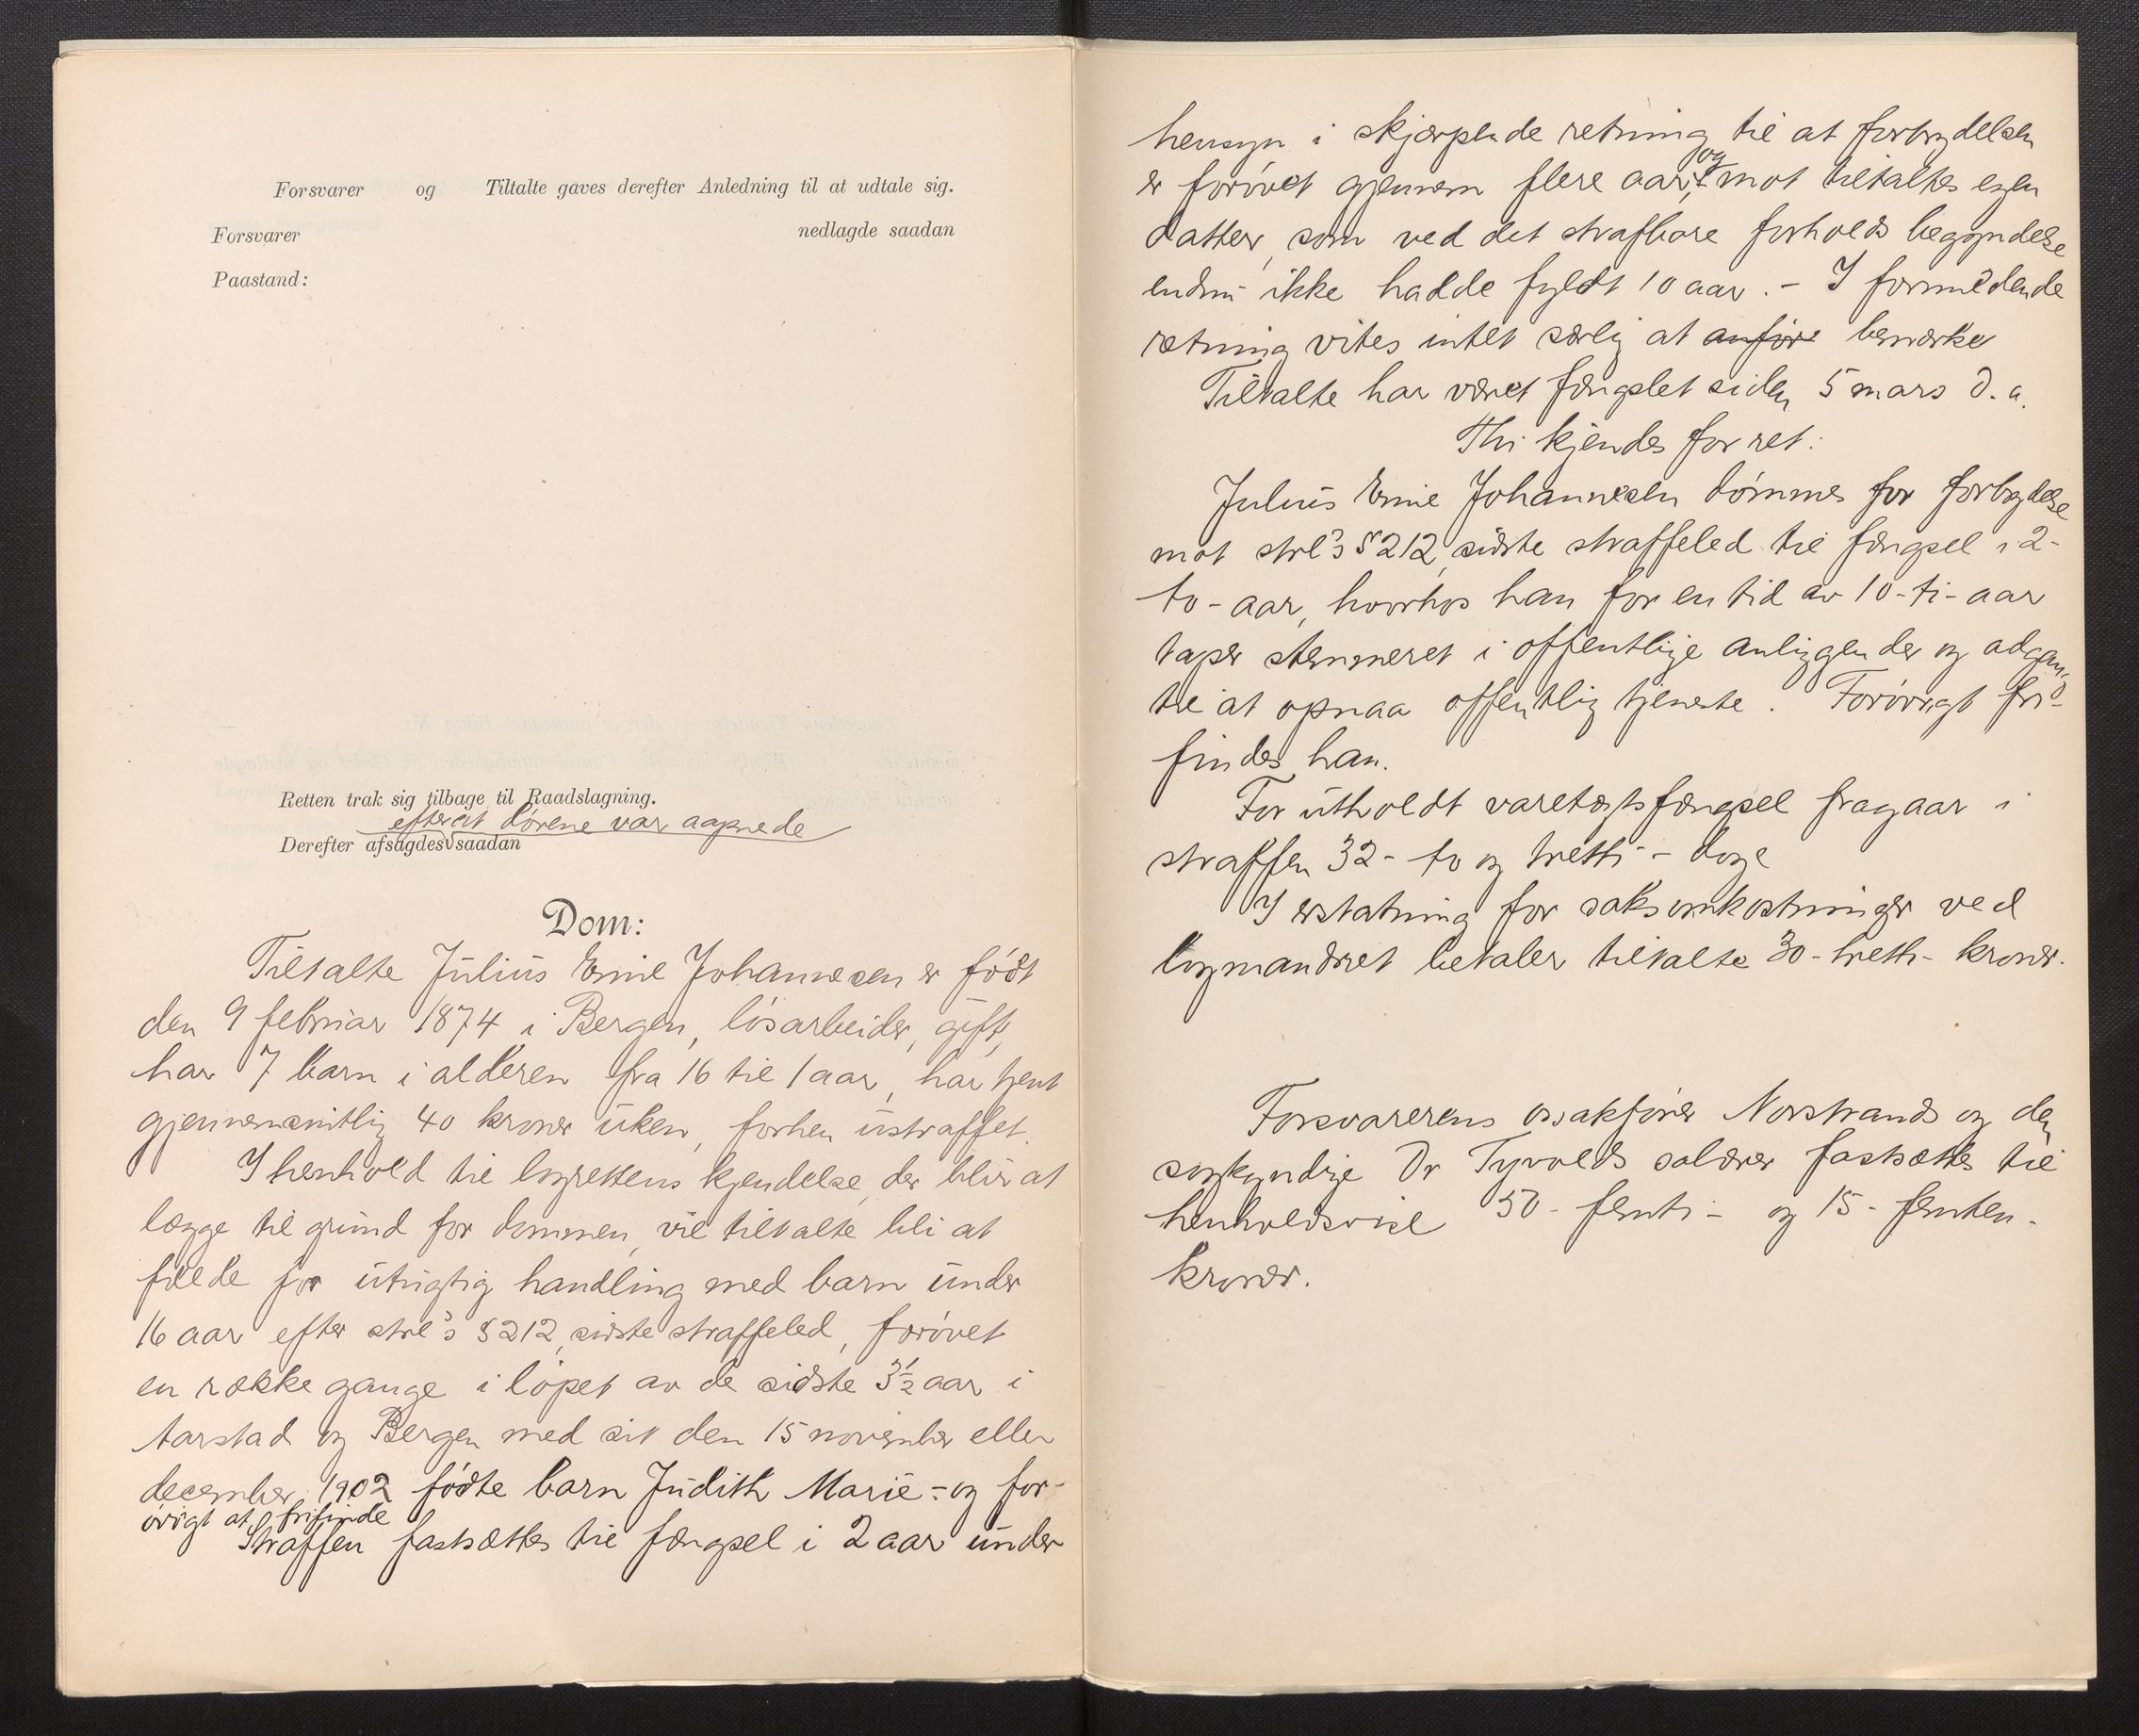 Forsvarer og Tiltalte gaves derefter Anledning til at udtale sig.
Forsvarer nedlagde saadan
Paastand:
Retten trak sig tilbage til Raadslagning.
efterat dørene var aapnede
Derefter afsagdes saadan
Dom:
Tiltalte Julius Emil Johannesen er født
den 9 februar 1874 i Bergen, løsarbeider, gift,
har 7 barn i alderen fra 16 til 1 aar, har tjent
gjennemsnitlig 40 kroner uken, forhen ustraffet.
I henhold til lagrettens kjendelse, der blir at
lægge til grund for dommen, vil tiltalte bli at
fælde for utugtig handling med barn under
16 aar efter strl's § 212, sidste straffeled, forøvet
en række gange i løpet av de sidste 3½ aar i
Aarstad og Bergen med sit den 15 november eller
december 1902 fødte barn Judith Marie - og for-
øvrigt at frifinde
Straffen fastsættes til fængsel i 2 aar under
hensyn i skjærpende retning til at forbrydelsen
er forøvet gjennem flere aar, og mot tiltaltes egen
datter, som ved det strafbare forholds begyndelse
endnu ikke hadde fyldt 10 aar. - I formildende
retning vites intet særlig at anføre bemærke
Tiltalte har været fængslet siden 5 mars d. a.
Thi kjendes for ret:
Julius Emil Johannesen dømmes for forbrydelse
mot strl's § 212, sidste straffeled til fængsel i 2-
to- aar, hvorhos han for en tid av 10-ti- aar
taper stemmeret i offentlige anliggender og adgang
til at opnaa offentlig tjeneste. Forøvrigt fri-
findes han.
For utholdt varetægtsfængsel fragaar i
straffen 32- to og tretti - døge
I erstatning for saksomkostninger ved
lagmandsret betaler tiltalte 30-tretti- kroner.
Forsvarerens o.r.sakfører Norstrands og den
sagkyndige Dr Tyvolds salærer fastsættes til
henholdsvise 50- femti - og 15- femten-
kroner.